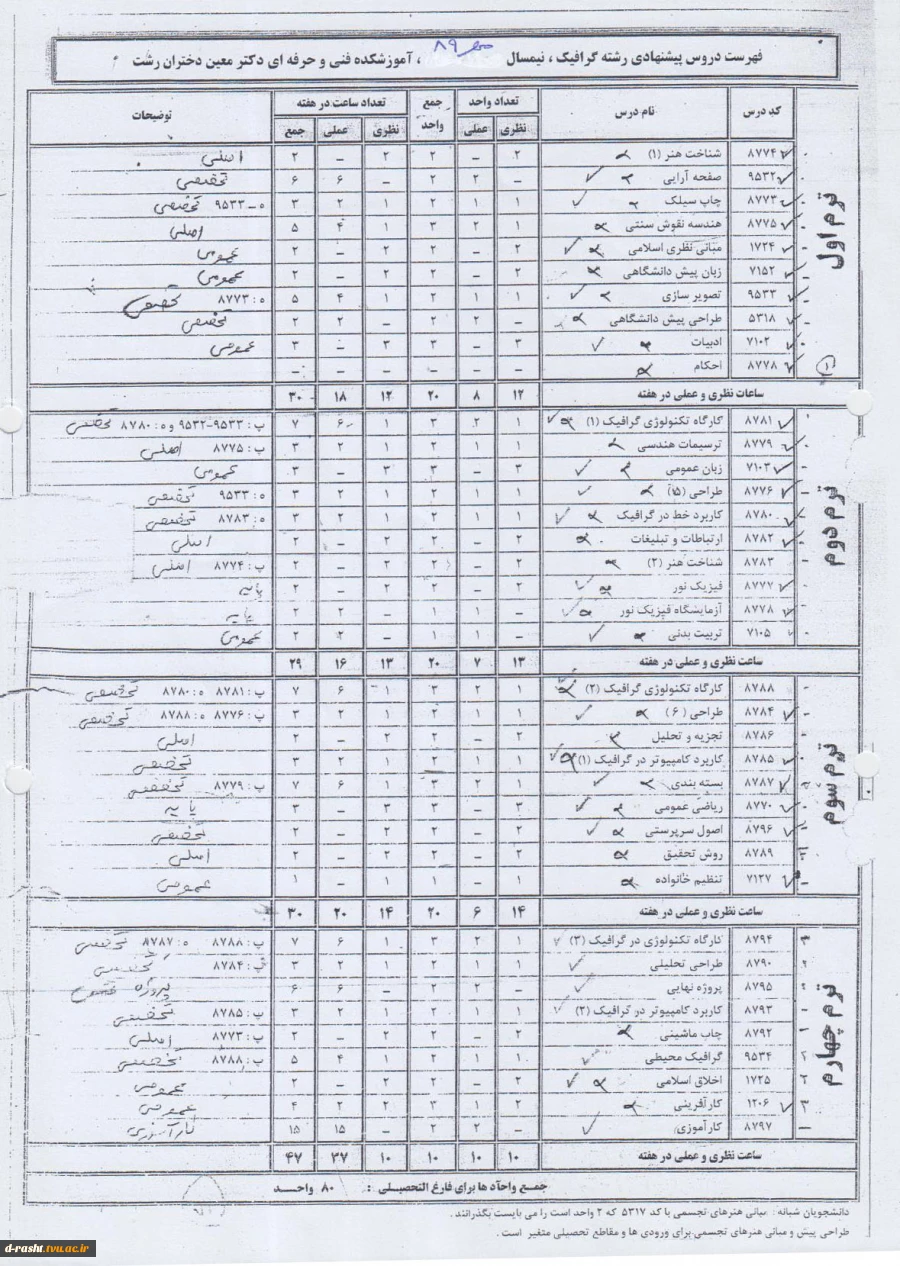 فهرست دروس پیشنهادی رشته گرافیک ، نیمسال مهر ۸۹ ، آموزشکده فنی و حرفه ای دکتر معین دختران رشت
کد درس نام درس تعداد واحد جمع واحد تعداد ساعت در هفته توضیحات
نظری عملی نظری عملی جمع
ترم اول
۸۷۷۴ شناخت هنر (۱) ۲ – ۲ ۲ – ۲ اصلی
۹۵۳۲ صفحه آرایی – ۲ ۲ – ۶ ۶ تخصصی
۸۷۷۳ چاپ سیلک ۱ ۱ ۲ ۱ ۲ ۳ ه-۹۵۳۳ تخصصی
۸۷۷۵ هندسه نقوش سنتی ۱ ۲ ۳ ۱ ۴ ۵ اصلی
۱۷۲۴ مبانی نظری اسلامی ۲ – ۲ ۲ – ۲ عمومی
۷۱۵۲ زبان پیش دانشگاهی ۲ – ۲ ۲ – ۲ عمومی
۹۵۳۳ تصویر سازی ۱ ۱ ۲ ۱ ۴ ۵ ه: ۸۷۷۳ تخصصی
۵۳۱۸ طراحی پیش دانشگاهی – ۲ ۲ – ۲ ۲ تخصصی
۷۱۰۲ ادبیات ۳ – ۳ ۳ – ۳ عمومی
۸۷۷۸ احکام – – – – – –
ساعات نظری و عملی در هفته ۱۲ ۸ ۲۰ ۱۲ ۱۸ ۳۰
ترم دوم
۸۷۸۱ کارگاه تکنولوژی گرافیک (۱) ۱ ۲ ۳ ۱ ۶ ۷ پ: ۹۵۳۳-۹۵۳۲ و ه: ۸۷۸۰ تخصصی
۸۷۷۹ ترسیمات هندسی ۱ ۱ ۲ ۱ ۲ ۳ پ: ۸۷۷۵ اصلی
۷۱۰۳ زبان عمومی ۳ – ۳ ۳ – ۳ عمومی
۸۷۷۶ طراحی (۵) ۱ ۱ ۲ ۱ ۲ ۳ ه: ۹۵۳۳ تخصصی
۸۷۸۰ کاربرد خط در گرافیک ۱ ۱ ۲ ۱ ۲ ۳ ه: ۸۷۸۳ تخصصی
۸۷۸۲ ارتباطات و تبلیغات ۲ – ۲ ۲ – ۲ اصلی
۸۷۸۳ شناخت هنر (۲) ۲ – ۲ ۲ – ۲ پ: ۸۷۷۴ اصلی
۸۷۷۷ فیزیک نور ۲ – ۲ ۲ – ۲ پایه
۸۷۷۸ آزمایشگاه فیزیک نور – ۱ ۱ – ۲ ۲ پایه
۷۱۰۵ تربیت بدنی – ۱ ۱ – ۲ ۲ عمومی
ساعت نظری و عملی در هفته ۱۳ ۷ ۲۰ ۱۳ ۱۶ ۲۹
ترم سوم
۸۷۸۸ کارگاه تکنولوژی گرافیک (۲) ۱ ۲ ۳ ۱ ۶ ۷ پ: ۸۷۸۱ ه: ۸۷۸۰ تخصصی
۸۷۸۴ طراحی (۶) ۱ ۱ ۲ ۱ ۲ ۳ پ: ۸۷۷۶ ه: ۸۷۸۸ تخصصی
۸۷۸۶ تجزیه و تحلیل ۲ – ۲ ۲ – ۲ اصلی
۸۷۸۵ کاربرد کامپیوتر در گرافیک (۱) ۱ ۱ ۲ ۱ ۲ ۳ تخصصی
۸۷۸۷ بسته بندی ۱ ۲ ۳ ۱ ۶ ۷ پ: ۸۷۷۹ تخصصی
۸۷۷۰ ریاضی عمومی ۳ – ۳ ۳ – ۳ پایه
۸۷۹۶ اصول سرپرستی ۲ – ۲ ۲ – ۲ تخصصی
۸۷۸۹ روش تحقیق ۲ – ۲ ۲ – ۲ اصلی
۷۱۲۷ تنظیم خانواده ۱ – ۱ ۱ – ۱ عمومی
ساعت نظری و عملی در هفته ۱۴ ۶ ۲۰ ۱۴ ۲۰ ۳۰
ترم چهارم
۸۷۹۴ کارگاه تکنولوژی در گرافیک (۳) ۱ ۲ ۳ ۱ ۶ ۷ پ: ۸۷۸۸ ه: ۸۷۸۷ تخصصی
۸۷۹۰ طراحی تحلیلی ۱ ۱ ۲ ۱ ۲ ۳ پ: ۸۷۸۴ تخصصی
۸۷۹۵ پروژه نهایی – ۲ ۲ – ۶ ۶ پروژه
۸۷۹۳ کاربرد کامپیوتر در گرافیک (۲) ۱ ۱ ۲ ۱ ۲ ۳ پ: ۸۷۸۵ تخصصی
۸۷۹۲ چاپ ماشینی ۲ – ۲ ۲ – ۲ پ: ۸۷۷۳ اصلی
۹۵۳۴ گرافیک محیطی ۱ ۱ ۲ ۱ ۴ ۵ پ: ۸۷۸۸ تخصصی
۱۷۲۵ اخلاق اسلامی ۲ – ۲ ۲ – ۲ عمومی
۱۲۰۶ کارآفرینی ۲ ۱ ۳ ۲ ۲ ۴ عمومی
۸۷۹۷ کارآموزی – ۲ ۲ – ۱۵ ۱۵ کارآموزی
ساعت نظری و عملی در هفته ۱۰ ۱۰ ۱۰ ۱۰ ۳۷ ۴۷
جمع واحد ها برای فارغ التحصیلی : ۸۰ واحد
دانشجویان شبانه : مبانی هنرهای تجسمی با کد ۵۳۱۷ که ۲ واحد است را می بایست بگذرانند .
طراحی پیش و مبانی هنرهای تجسمی برای ورودی ها و مقاطع تحصیلی متغیر است .
d-rasht.tvu.ac.ir